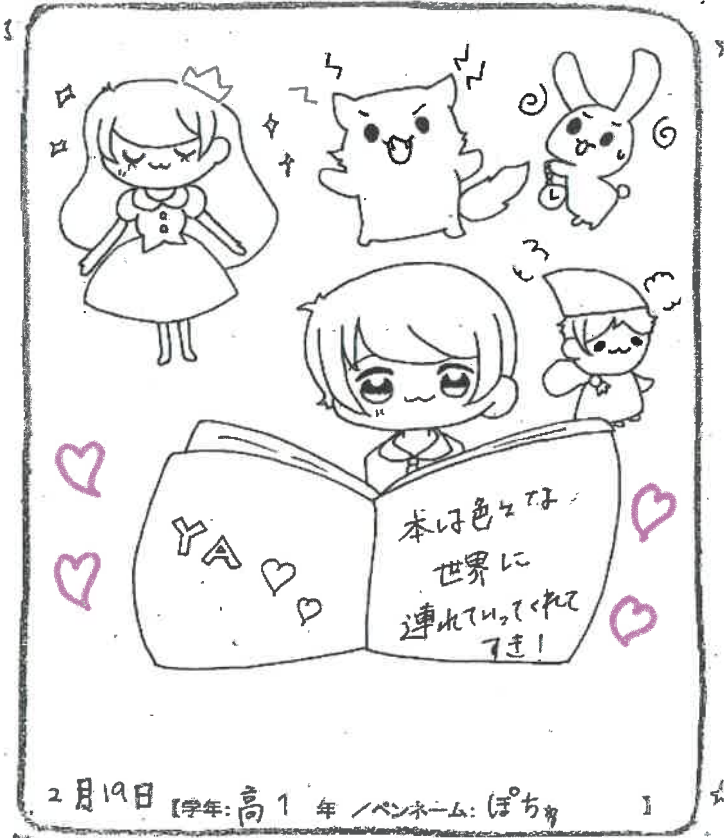 YA
本は色々な
世界に
連れていってくれて
すき!
2月19日【学年:高1年/ペンネーム:ぽち】